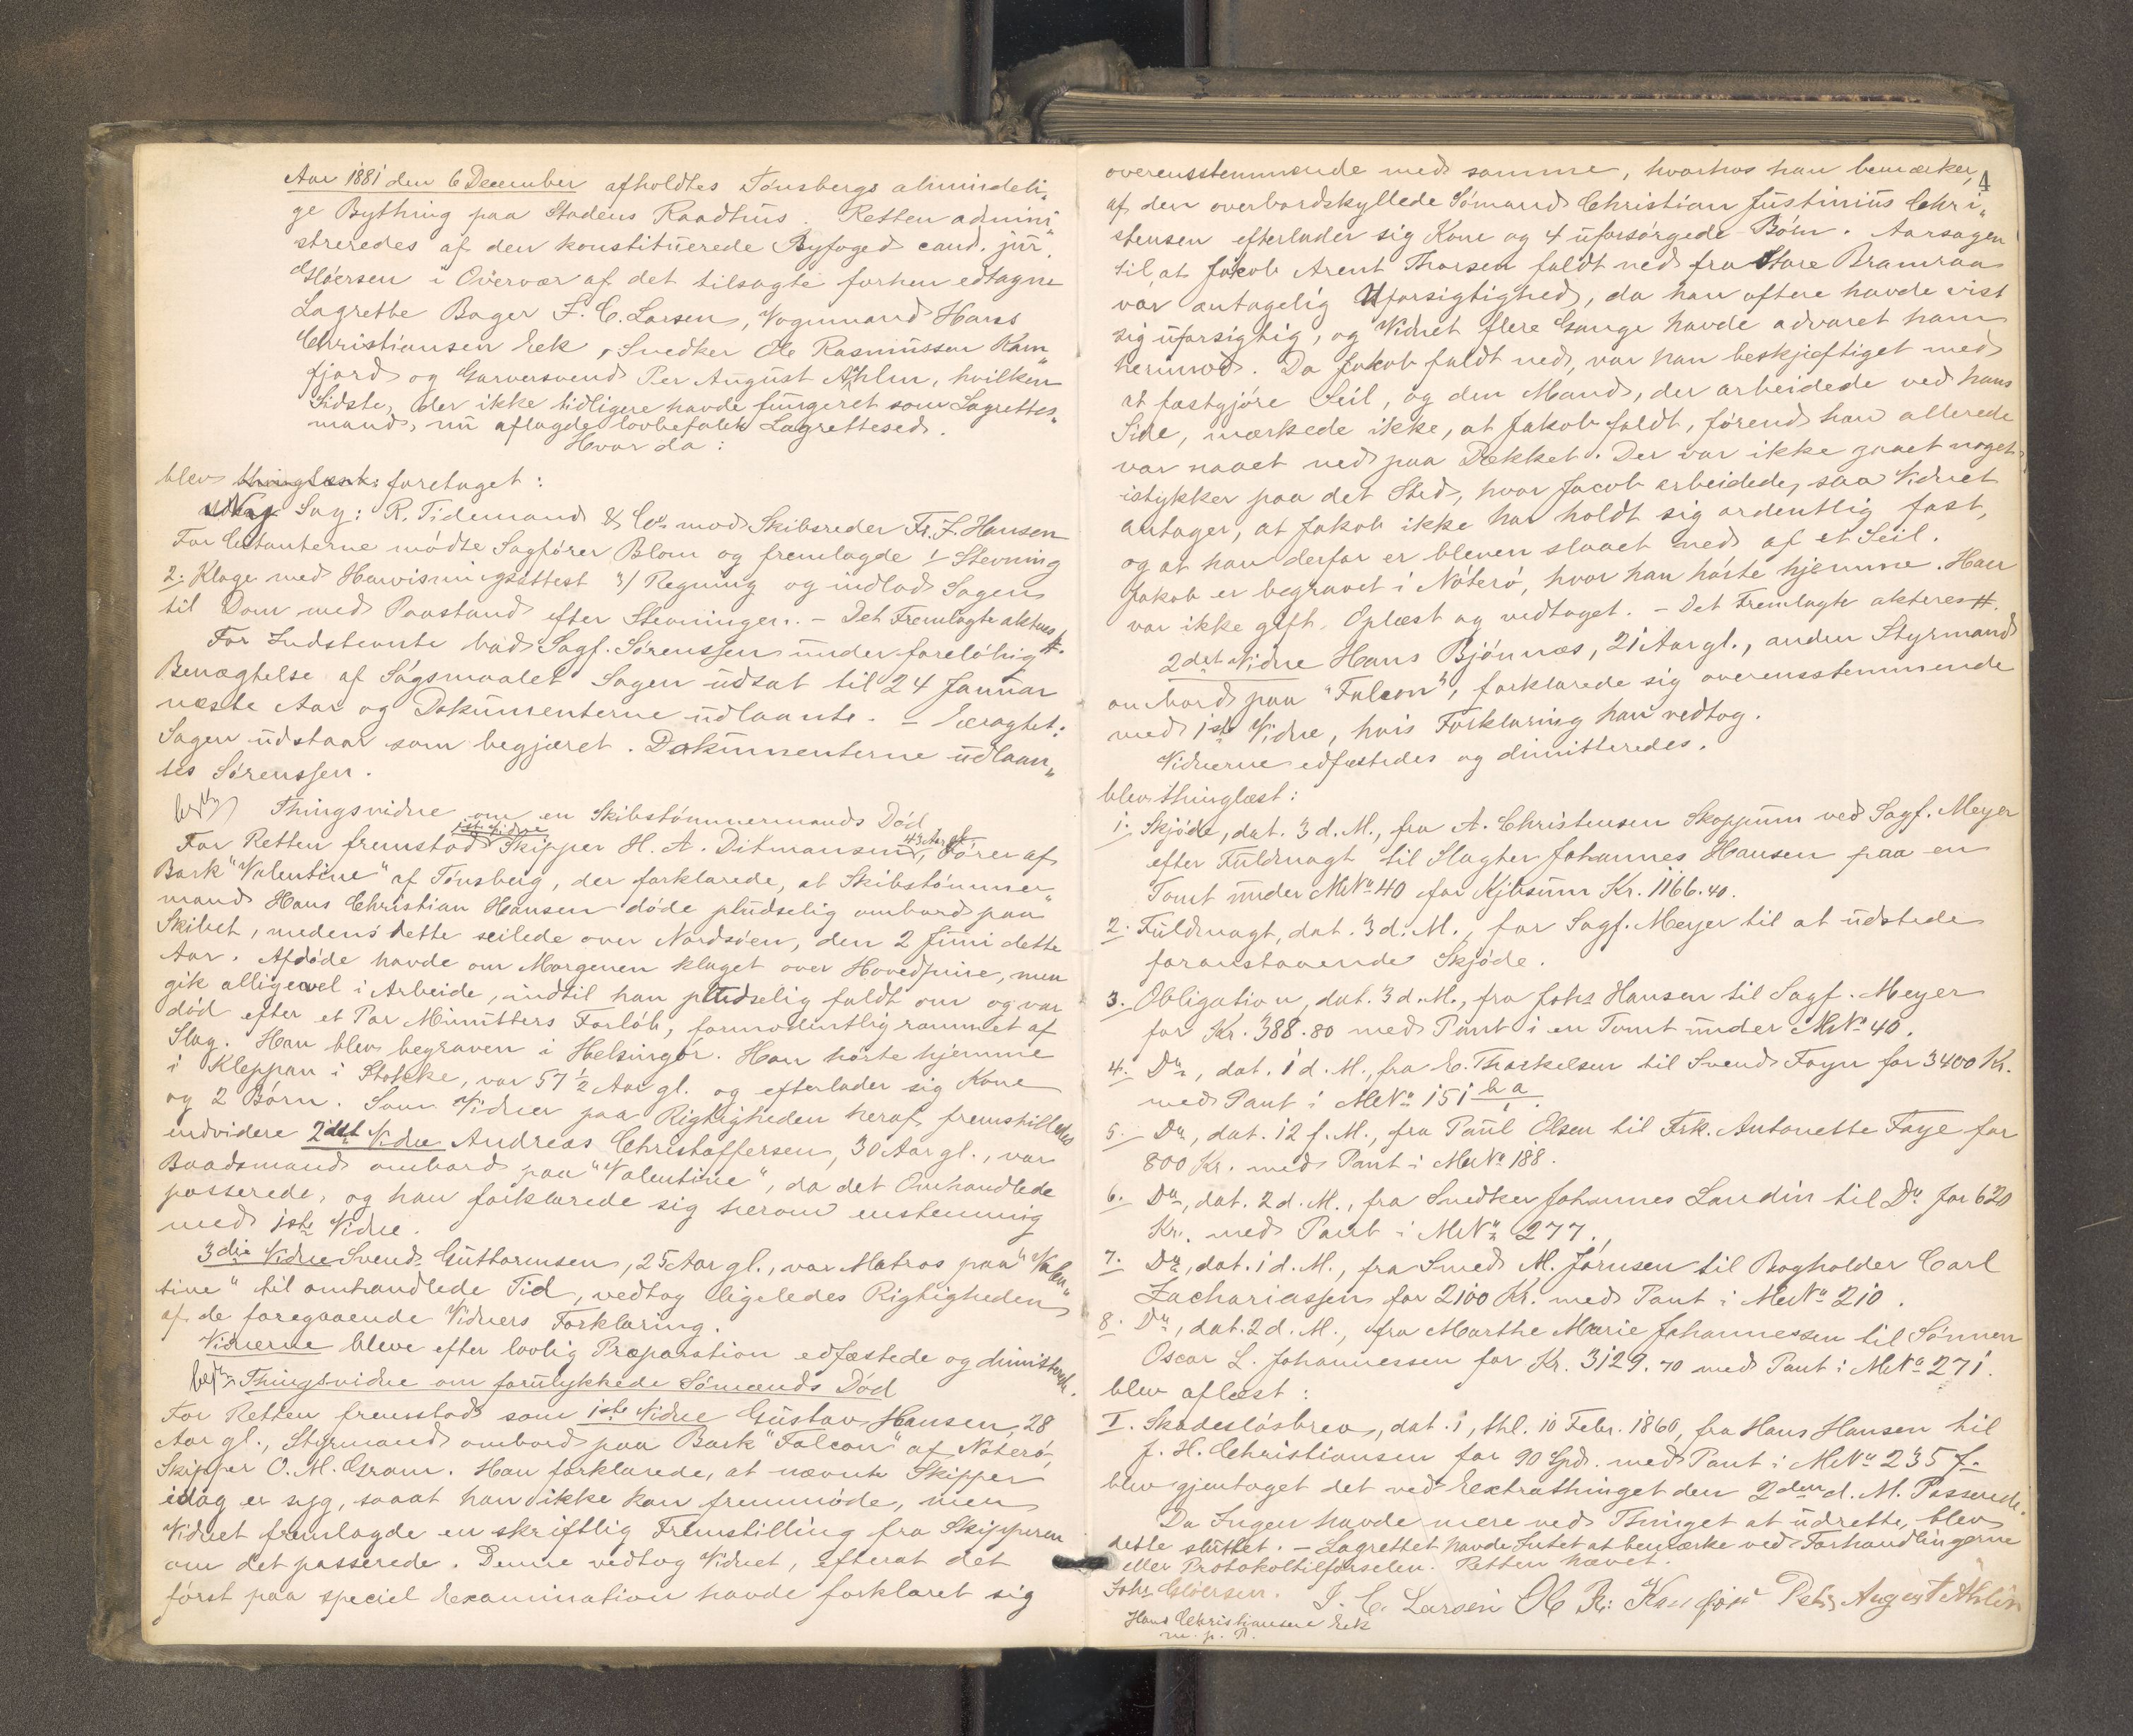 Aar 1881 den 6 December afholdtes Tönsbergs almindeli„
ge Bything paa Stadens Raadhus. Retten admini„
streredes af den konstituerede Byfoged cand. jur.
Gløersen i Overvær af det tilsagte forhen edtagne
Lagrette Bager F. C. Larsen, Vognmand Hans
Christiansen Eek, Snedker Ole Rasmussen Kam„
fjord og Garversvend Per August Ahlin, hvilken
Sidste, der ikke tidligere havde fungeret som Lagrettes„
mand, nu aflagde lovbefalet Lagrettesed.
Hvor da:
blev thinglæst: foretaget:
Ny Sag: R. Tidemand & Co. mod Skibsreder Fr. F. Hansen
For Citanterne mödte Sagförer Blom og fremlagde 1/ Stevning
2. Klage med Henvisningsattest 3/ Regning og indlod Sagen
til Dom med Paastand efter Stevningen. – Det Fremlagte akteres #.
For Indstevnte bad Sagf. Sörenssen under forelöbig
Benægtelse af Sögsmaalet Sagen udsat til 24 Januar
næste Aar og Dokumenterne udlaante. – Eragtet:
Sagen udstaar som begjæret. Dokumenterne udlaan„
tes Sörenssen.
besk. Thingsvidne om en Skibstömmermands Död
For Retten fremstod 1ste Vidne Skipper H. A. Ditmansen, 43 Aar gl., Förer af
Bark "Valentine" af Tönsberg, der forklarede, at Skibstömmer„
mand Hans Christian Hansen döde pludselig ombord paa
Skibet, medens dette seilede over Nordsöen, den 2 Juni dette
Aar. Afdöde havde om Morgenen klaget over Hovedpine, men
gik alligevel i Arbeide, indtil han pludselig faldt om og var
död efter et Par Minutters Forlöb, formodentlig rammet af
Slag. Han blev begraven i Helsingör. Han hörte hjemme
i Kleppan i Stokke, var 57 ½ Aar gl. og efterlader sig Kone
og 2 Börn. Som Vidner paa Rigtigheden heraf fremstilledes
endvidere 2det Vidne Andreas Christoffersen, 30 Aar gl., var
Baadsmand ombord paa "Valentine", da det Omhandlede
passerede, og han forklarede sig herom enstemmig
med 1ste Vidne.
3die Vidne Svend Guttormsen, 25 Aar gl., var Matros paa "Valen„
tine" til omhandlede Tid, vedtog ligeledes Rigtigheden
af de foregaaende Vidners Forklaring.
Vidnerne bleve efter lovlig Præparation edfæstede og dimitterede.
besk. Thingsvidne om forulykkede Sömænds Död
For Retten fremstod som 1ste Vidne Gustav Hansen, 28
Aar gl., Styrmand ombord paa Bark "Falcon" af Nöterö,
Skipper O. M. Gram. Han forklarede, at nævnte Skipper
idag er syg, saaat han ikke kan fremmöde, men
Vidnet fremlagde en skriftlig Fremstilling fra Skipperen
om det passerede. Denne vedtog Vidnet, efterat det
först paa speciel Examination havde forklaret sig
4
overensstemmende med samme, hvorhos han bemærker,
af den overbordskyllede Sömand Christian Justinius Chri„
stensen efterlader sig Kone og 4 uforsörgede Börn. Aarsagen
til, at Jakob Arent Thorsen faldt ned fra Store Bramraa
var antagelig Uforsigtighed, da han oftere havde vist
sig uforsigtig, og Vidnet flere Gange havde advaret ham
herimod. Da Jakob faldt ned, var han beskjæftiget med
at fastgjöre Seil, og den Mand, der arbeidede ved hans
Side, mærkede ikke, at Jakob faldt, förend han allerede
var naaet ned paa Dækket. Der var ikke gaaet noget
istykker paa det Sted, hvor Jacob arbeidede, saa Vidnet
antager, at Jakob ikke har holdt sig ordentlig fast,
og at han derfor er bleven slaaet ned af et Seil.
Jakob er begravet i Nöterö, hvor han hörte hjemme. Han
var ikke gift. Oplæst og vedtaget. – Det Fremlagte akteres #.
2det Vidne Hans Bjönnæs, 21 Aar gl., anden Styrmand
ombord paa "Falcon", forklarede sig overensstemmende
med 1ste Vidne, hvis Forklaring han vedtog.
Vidnerne edfæstedes og dimitteredes.
blev thinglæst:
1. Skjöde, dat. 3 d. M., fra A. Christensen Skoppum ved Sagf. Meyer
efter Fuldmagt til Slagter Johannes Hansen paa en
Tomt under MNo 40 for Kjöbsum Kr. 1166.40.
2. Fuldmagt, dat. 3 d. M., for Sagf. Meyer til at udstede
foranstaaende Skjöde.
3. Obligation, dat. 3 d. M., fra Johs Hansen til Sagf. Meyer
for Kr. 388.80 med Pant i en Tomt under MNo 40.
4. Do, dat. 1 d. M., fra E. Thorkelsen til Svend Foyn for 3400 Kr.
med Pant i MNo 151 b a.
5. Do, dat. 12 f. M., fra Paul Olsen til Frk. Antonette Faye for
800 Kr. med Pant i MNo 188.
6. Do, dat. 2 d. M., fra Snedker Johannes Lundin til Do for 620
Kr. med Pant i MNo 277.
7. Do, dat. 1 d. M., fra Smed M. Jörnsen til Bogholder Carl
Zachariassen for 2100 Kr. med Pant i MNo 210.
8. Do, dat. 2 d. M., fra Marthe Marie Johannessen til Sönnen
Oscar L. Johannessen for Kr. 3129.70 med Pant i MNo 271.
blev aflæst:
I. Skadeslösbrev, dat. 1, thl. 10 Febr. 1860, fra Hans Hansen til
J. H. Christiansen for 90 Spd. med Pant i MNo 235 f.
blev gjentaget det ved Extrathinget den 2den d. M. Passerede.
Da Ingen havde mere ved Thinget at udrette, blev
dette sluttet. – Lagrettet havde Intet at bemærke ved Forhandlingerne
eller Protokoltilförselen. Retten hævet.
Johs Gløersen. F. C. Larsen Ole R: Kamfjord Peter August Ahlin
Hans Christiansen Eek
m. p. P.